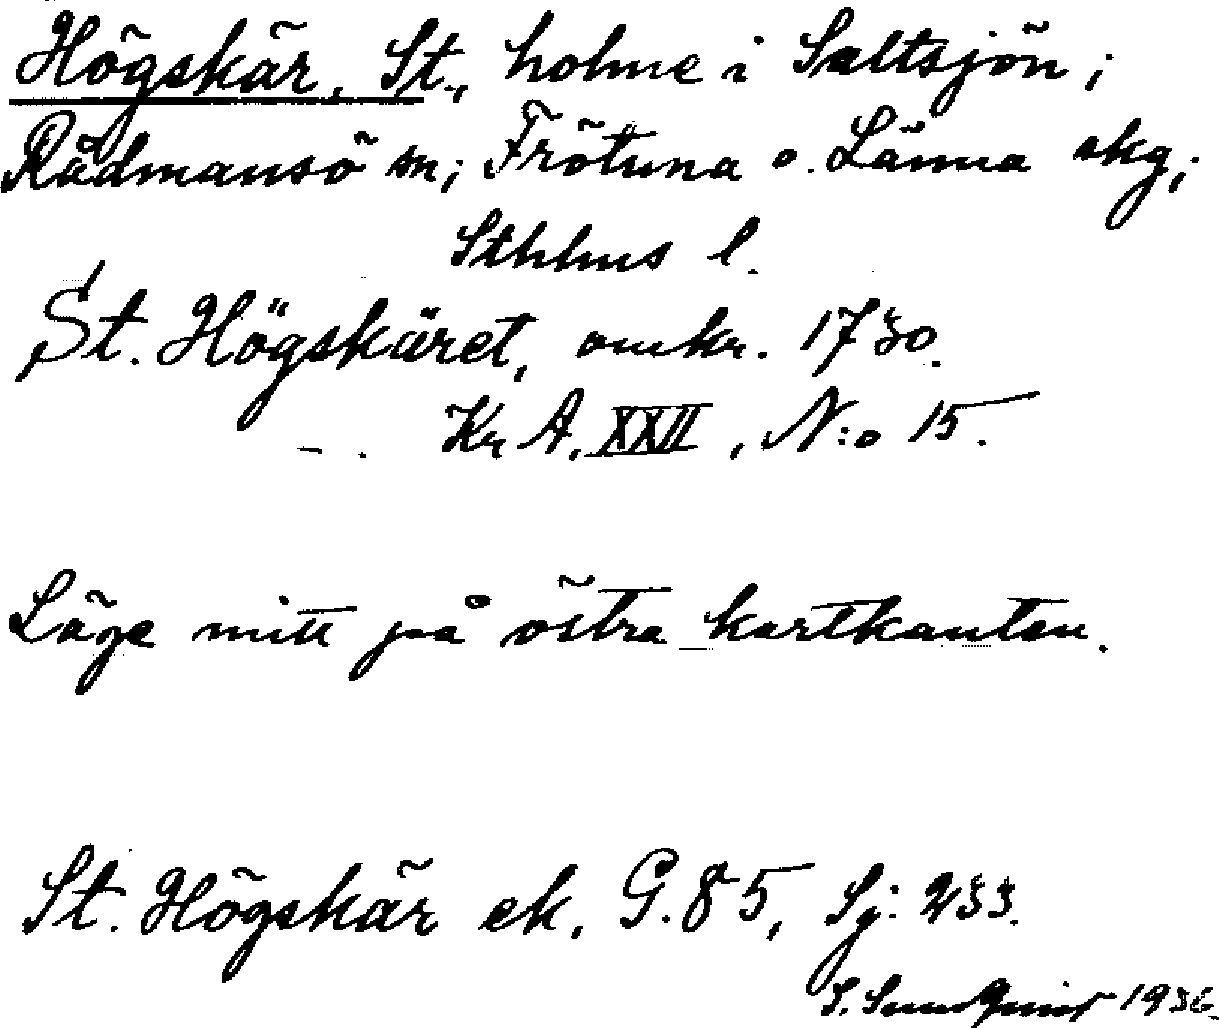 Högskär, St., holme i Saltsjön;
Rådmansö sn; Frötuna o. Länna skg;
Sthlms l.
St. Högskäret, omkr. 1730.
Kr A. XXII, N:o 15.
Läge mitt på östra kartkanten.
St. Högskär ek. G. 85, Sj: 233.
S. Sundquist 1936.